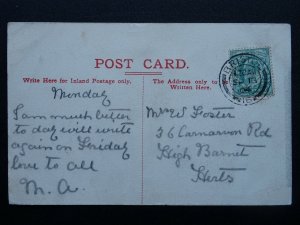 POST CARD.
Write Here for Inland Postage only,
The Address only to be Written Here.
Monday
I am much better
to day will write
again on Friday
love to all
M. A.
Mrs W Foster
36 Carnarvon Rd
High Barnet
Herts